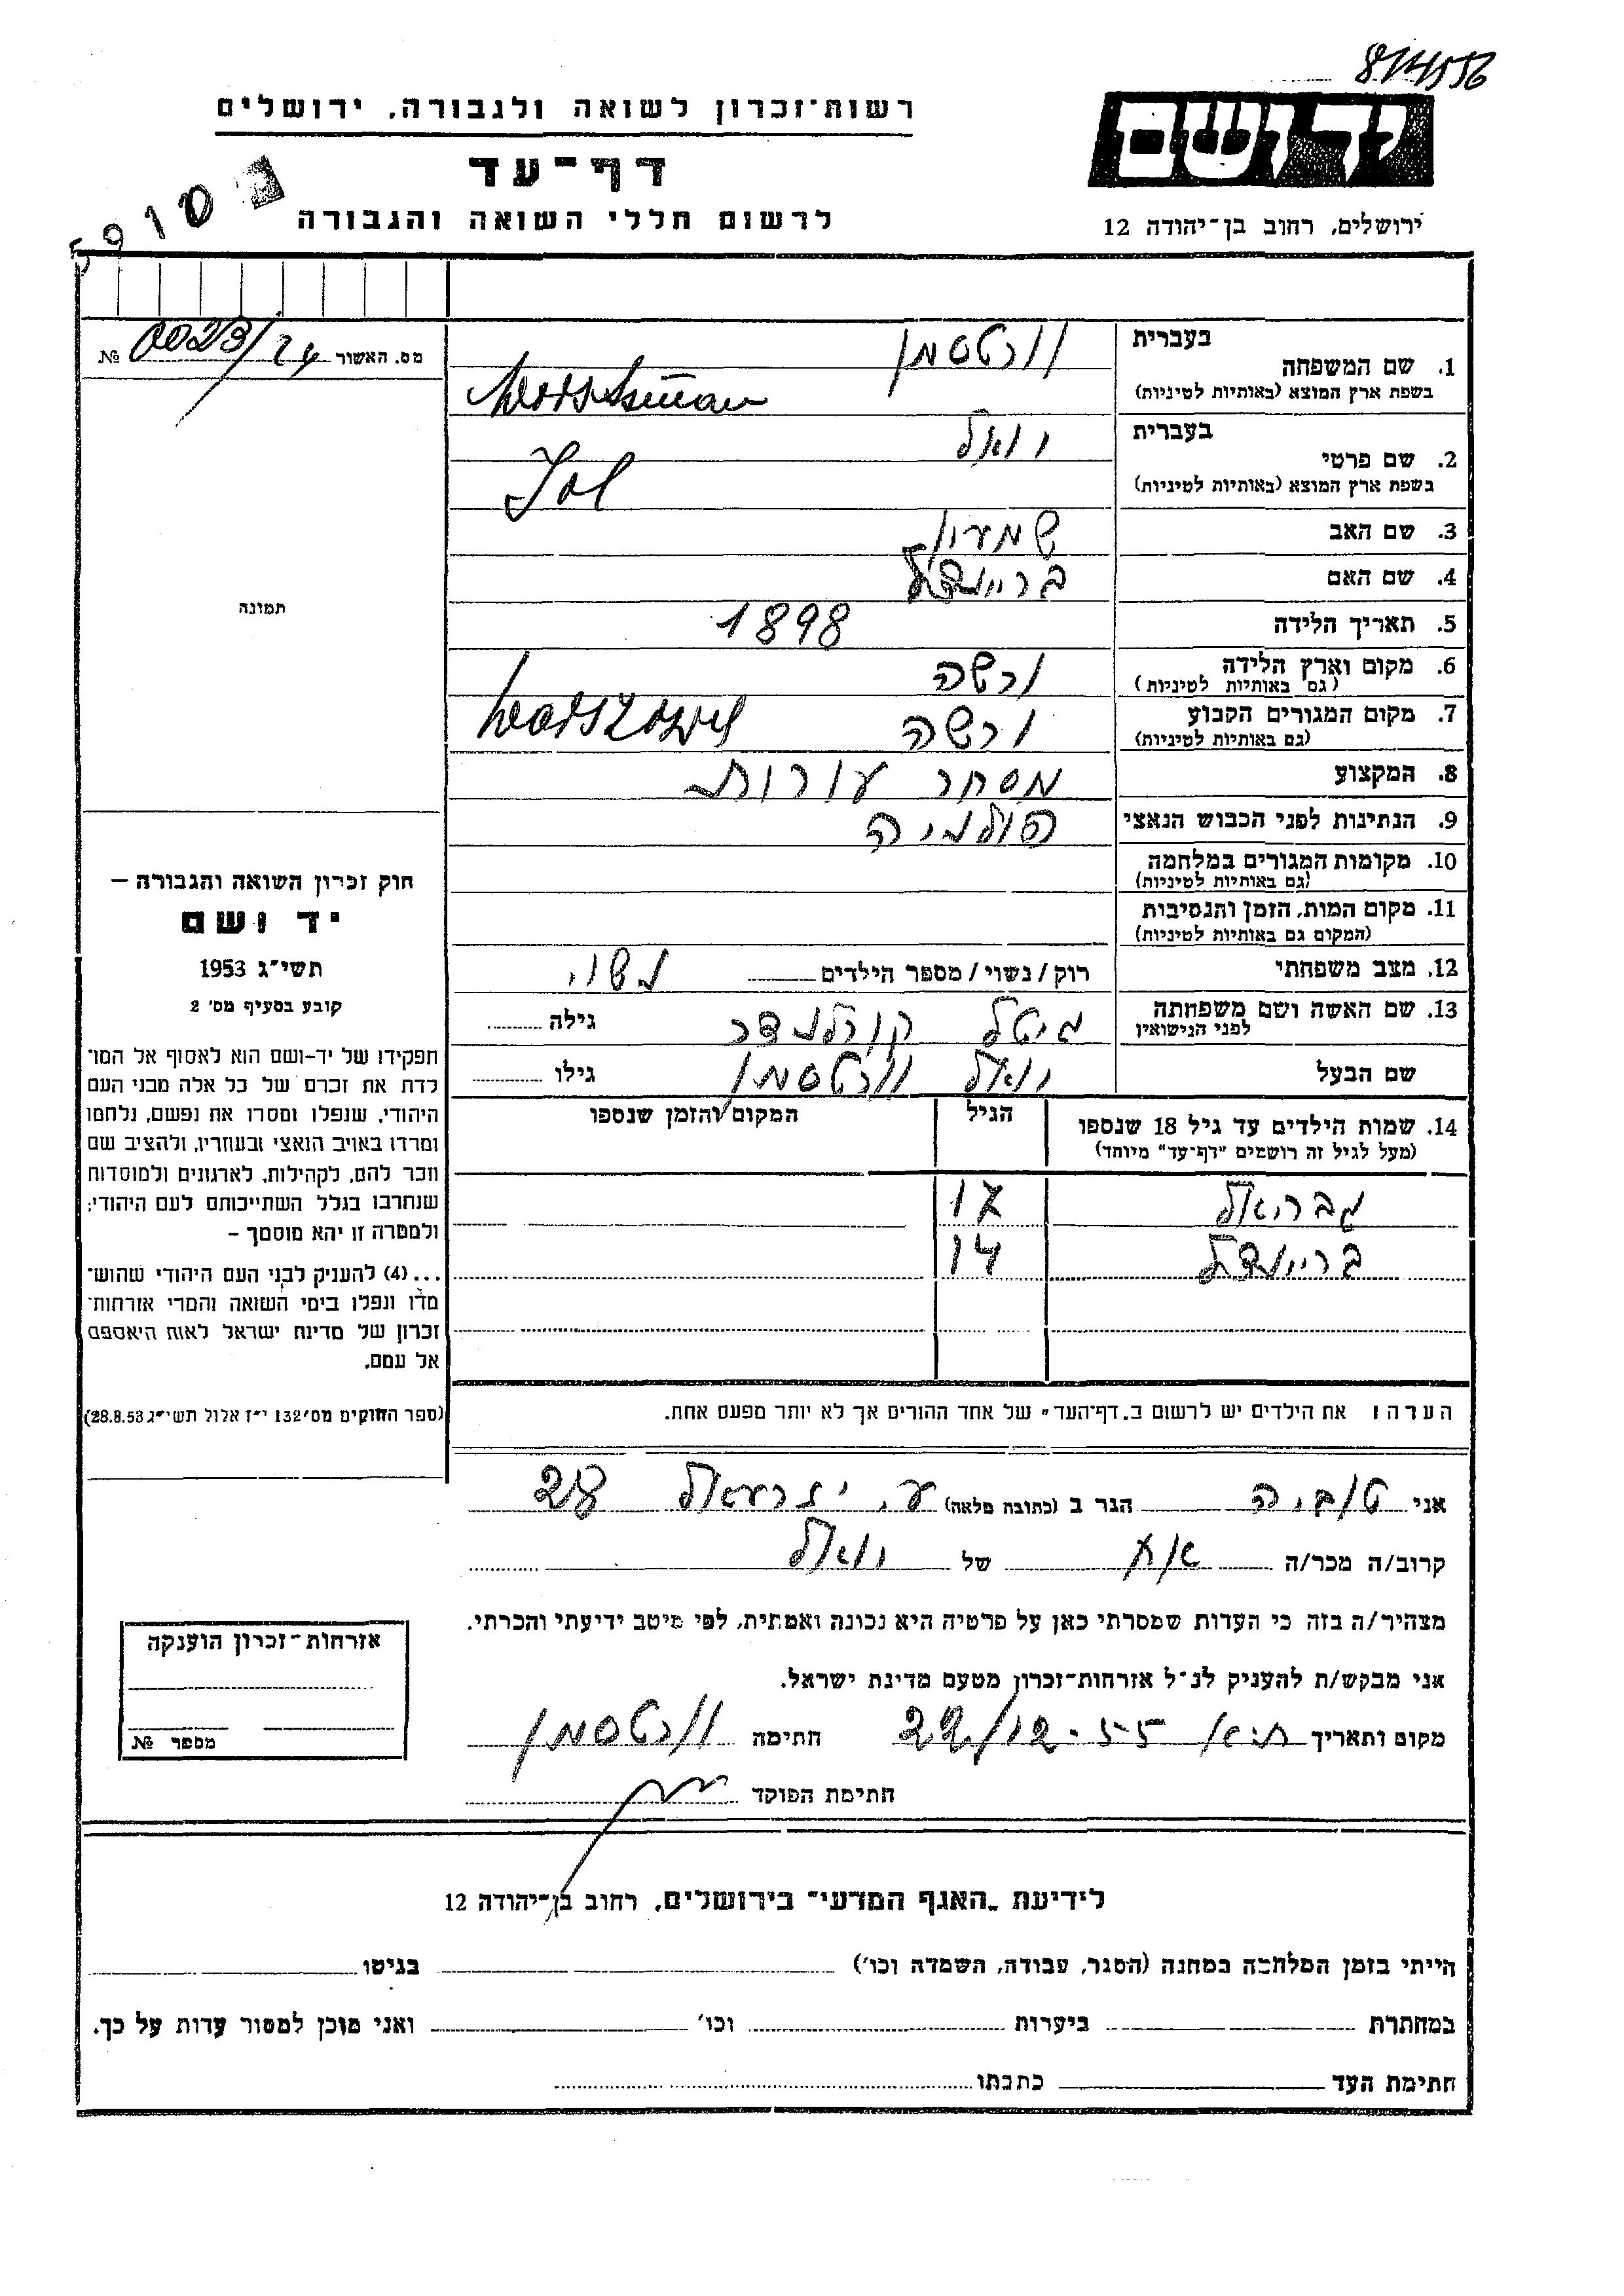 רשות-זכרון לשואה ולגבורה, ירושלים
דף-עד
לרשום חללי השואה והגבורה
יד ושם
ירושלים, רחוב בן-יהודה 12
מס. האשור 24/0023 №
1. שם המשפחה
בעברית וורטסמן
בשפת ארץ המוצא (באותיות לטיניות)
2. שם פרטי
בעברית יואל
בשפת ארץ המוצא (באותיות לטיניות) Jol
3. שם האב שמעון
4. שם האם בריינדל
5. תאריך הלידה 1898
6. מקום וארץ הלידה ורשה
(גם באותיות לטיניות)
7. מקום המגורים הקבוע ורשה
(גם באותיות לטיניות)
8. המקצוע מסחר עורות
9. הנתינות לפני הכבוש הנאצי פולניה
10. מקומות המגורים במלחמה
(גם באותיות לטיניות)
11. מקום המות, הזמן והנסיבות
(המקום גם באותיות לטיניות)
12. מצב משפחתי רוק/נשוי/מספר הילדים נשוי
13. שם האשה ושם משפחתה
לפני הנישואין גיטל קורלנדר גילה
שם הבעל יואל וורטסמן גילו
14. שמות הילדים עד גיל 18 שנספו הגיל המקום והזמן שנספו
(מעל לגיל זה רושמים "דף-עד" מיוחד)
גבריאל 17
בריינדל 14
הערה: את הילדים יש לרשום ב"דף-העד" של אחד ההורים אך לא יותר מפעם אחת.
תמונה
חוק זכרון השואה והגבורה –
יד ושם
תשי"ג 1953
קובע בסעיף מס' 2
תפקידו של יד-ושם הוא לאסוף אל המו-
לדת את זכרם של כל אלה מבני העם
היהודי, שנפלו ומסרו את נפשם, נלחמו
ומרדו באויב הנאצי ובעוזריו, ולהציב שם
וזכר להם, לקהילות, לארגונים ולמוסדות
שנחרבו בגלל השתייכותם לעם היהודי;
ולמטרה זו יהא מוסמך –
...(4) להעניק לבני העם היהודי שהוש-
מדו ונפלו בימי השואה והמרי אזרחות-
זכרון של מדינת ישראל לאות היאספם
אל עמם.
(ספר החוקים מס' 132 י"ז אלול תשי"ג 28.8.53)
אני טוביה הגר ב (כתובת מלאה) ע. יזרעאל 28
קרוב/ה מכר/ה אח של יואל
מצהיר/ה בזה כי העדות שמסרתי כאן על פרטיה היא נכונה ואמתית, לפי מיטב ידיעתי והכרתי.
אני מבקש/ת להעניק לנ"ל אזרחות-זכרון מטעם מדינת ישראל.
מקום ותאריך 22/12-55 חתימה וורטסמן
חתימת הפוקד
אזרחות-זכרון הוענקה
מספר №
לידיעת "האגף המדעי" בירושלים, רחוב בן-יהודה 12
הייתי בזמן המלחמה במחנה (הסגר, עבודה, השמדה וכו') בגיטו
במחתרת ביערות וכו' ואני מוכן למסור עדות על כך.
חתימת העד כתבתו